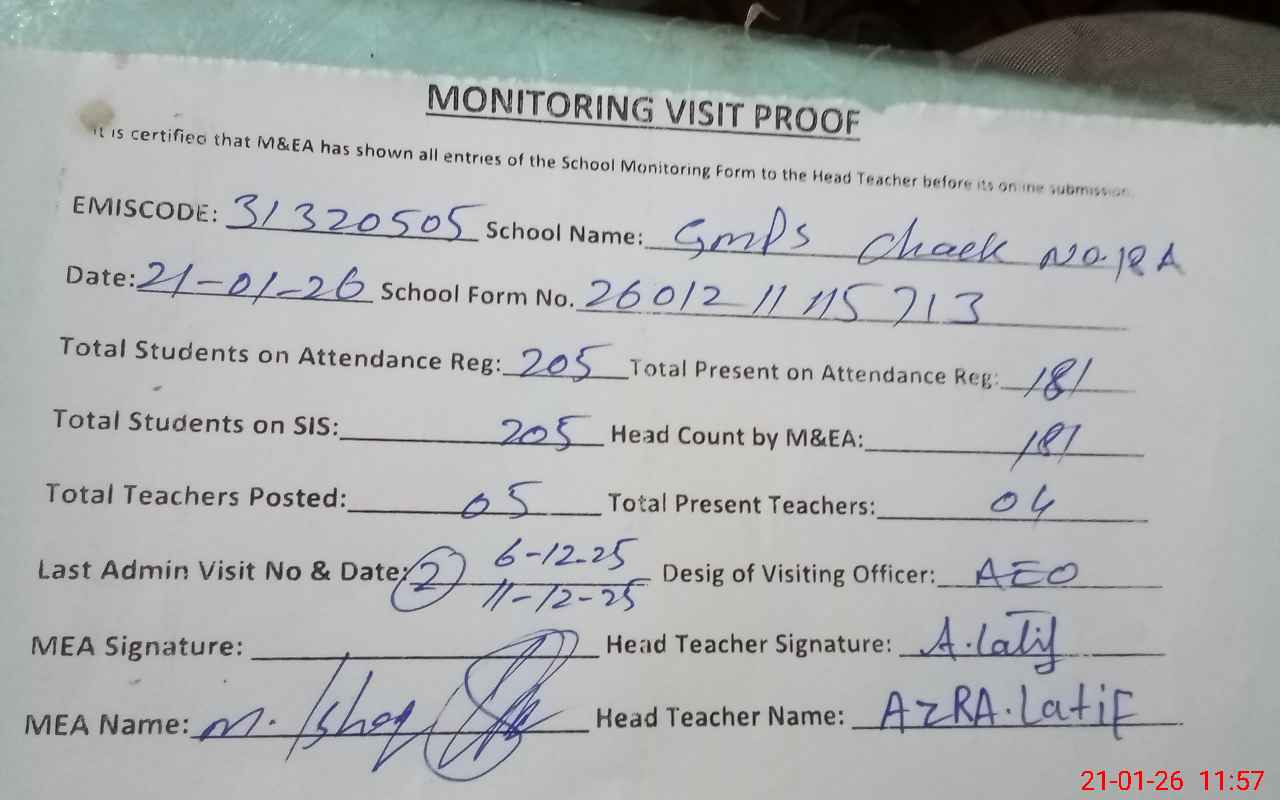 MONITORING VISIT PROOF
It is certified that M&EA has shown all entries of the School Monitoring Form to the Head Teacher before its online submission.
EMISCODE: 31320505 School Name: GMPS Chack No. 18 A
Date: 21-01-26 School Form No. 26012 11 115 713
Total Students on Attendance Reg: 205 Total Present on Attendance Reg: 181
Total Students on SIS: 205 Head Count by M&EA: 181
Total Teachers Posted: 05 Total Present Teachers: 04
Last Admin Visit No & Date: 2 6-12-25 11-12-25 Desig of Visiting Officer: AEO
MEA Signature: Head Teacher Signature: A.Latif
MEA Name: M. Ishaq Head Teacher Name: AzRA.Latif
21-01-26 11:57